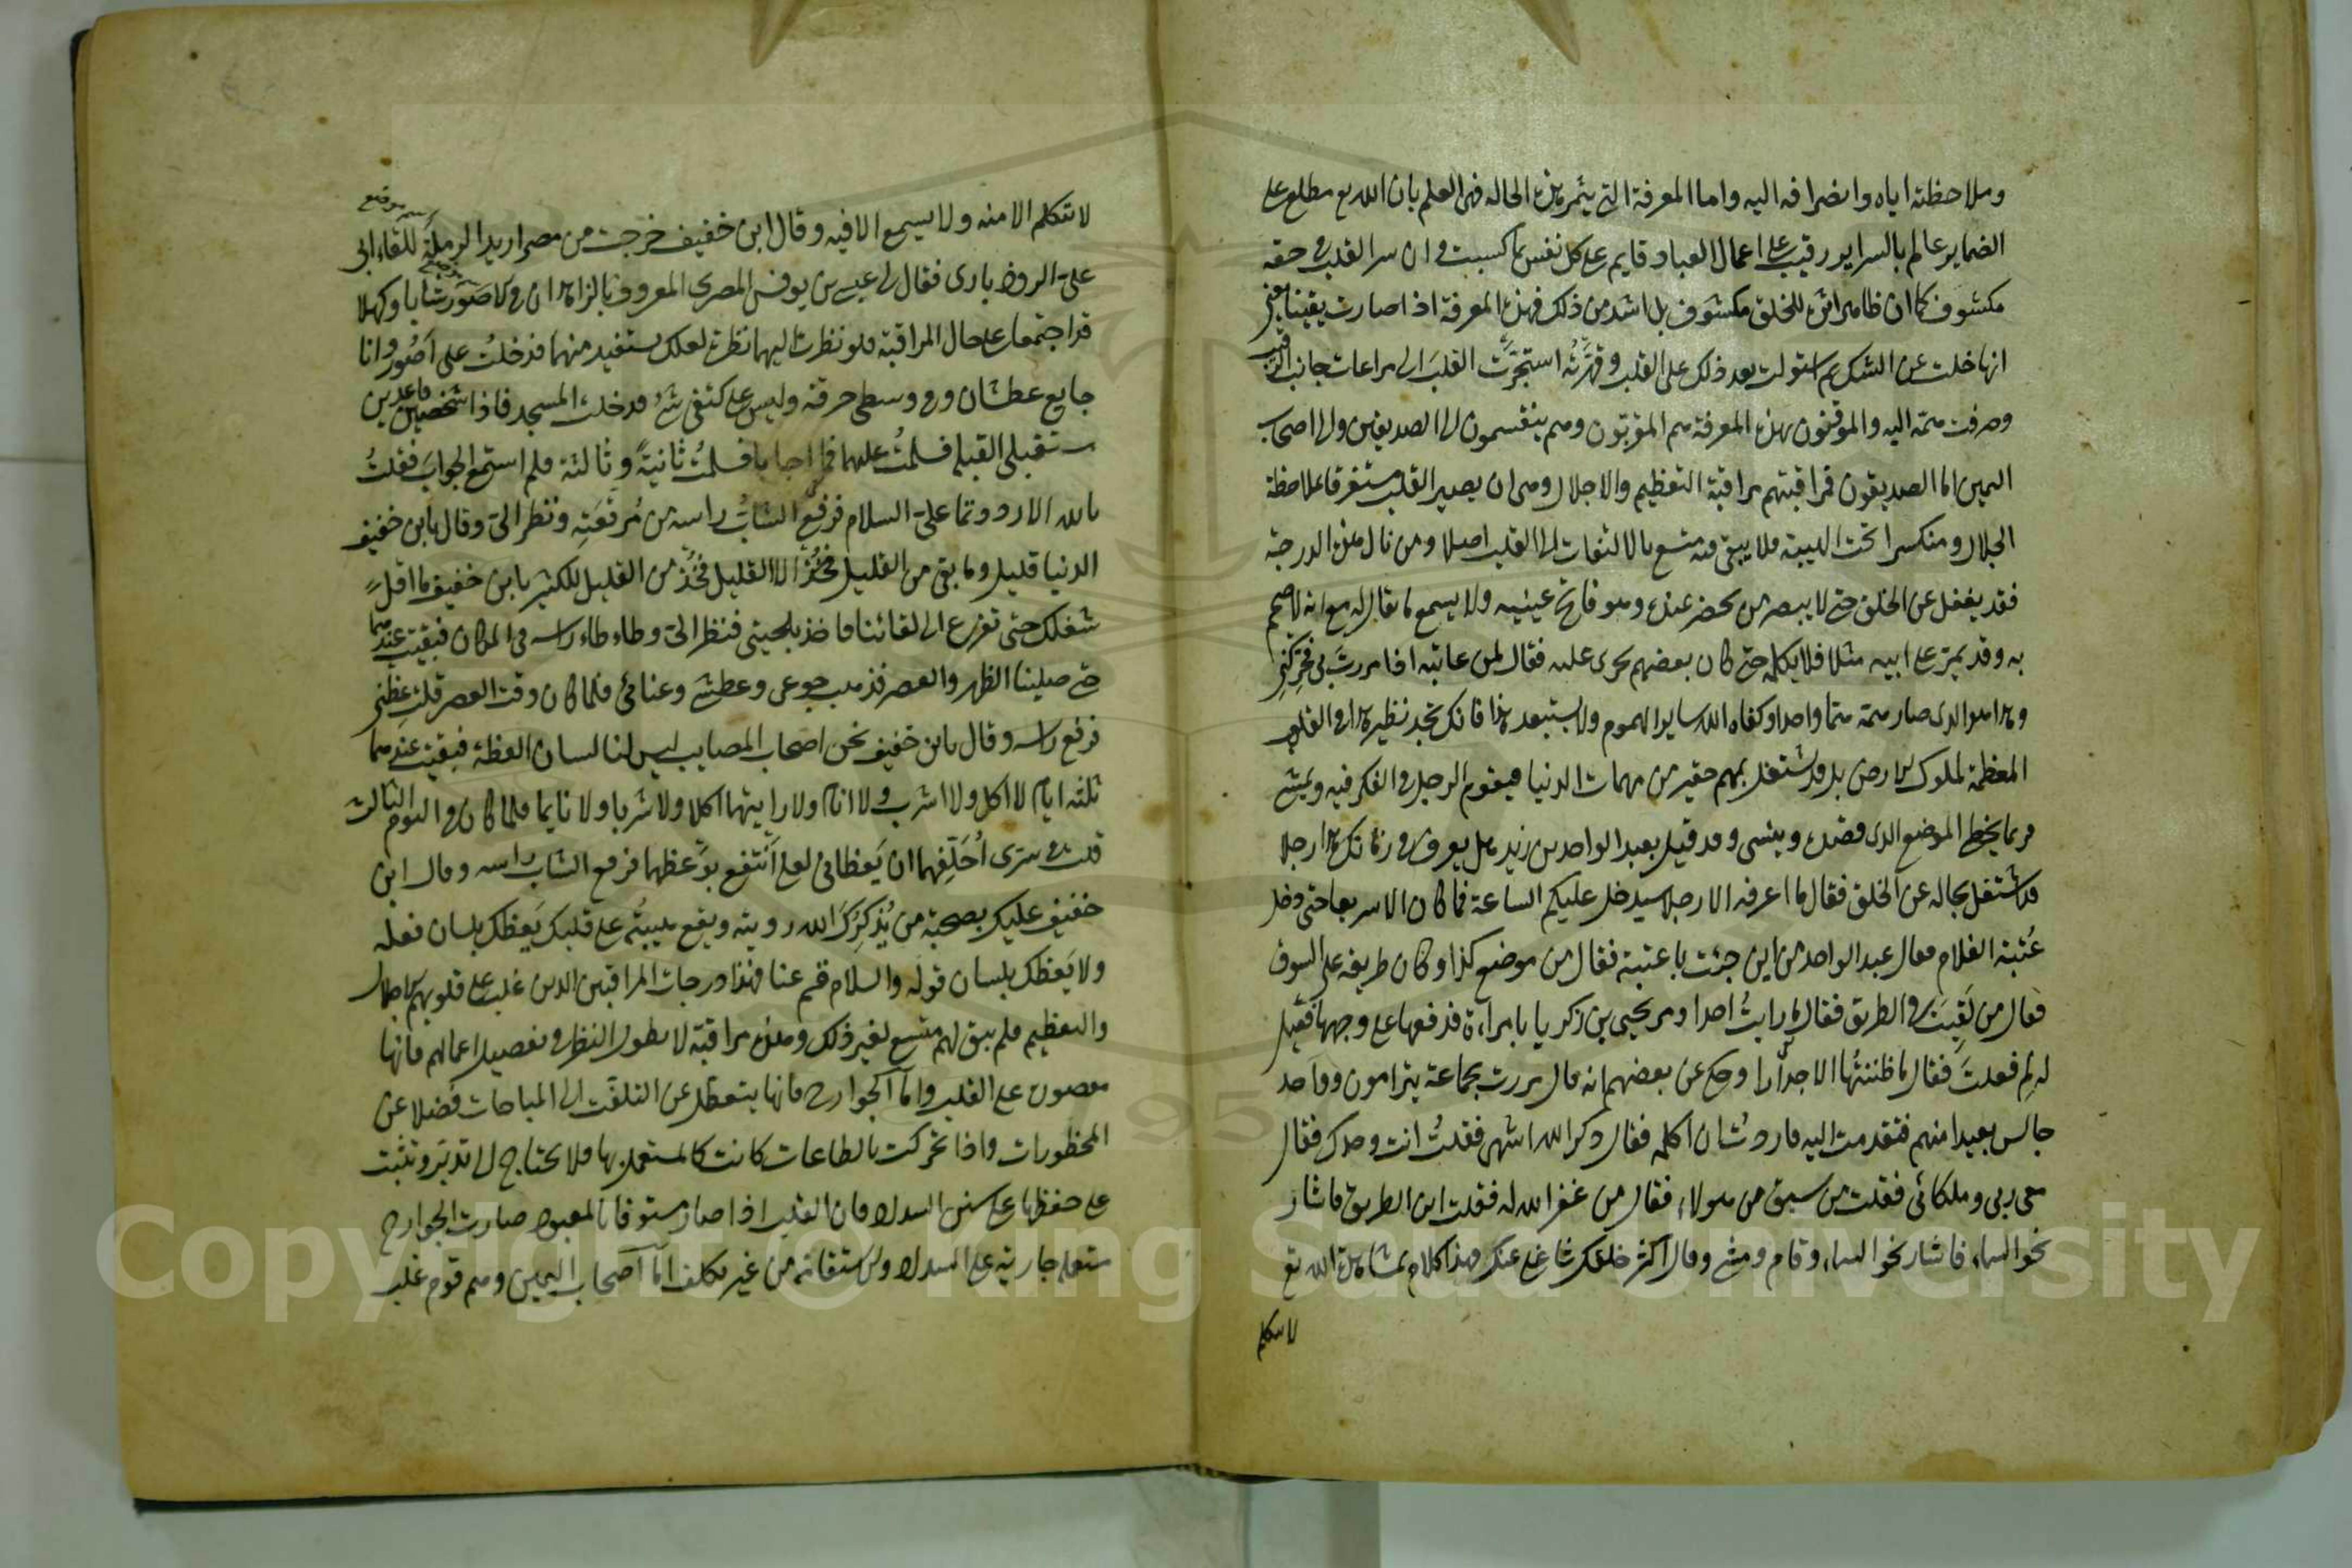 وملاحظته اياه وانصرافه اليه واما المعرفة التي يثمر هذه الحالة فهي العلم بان الله تع مطلع على
الضماير عالم بالسراير رقيب على اعمال العباد قايم على كل نفس بما كسبت وان سر القلب في حقه
مكشوف كما ان ظاهر البشرة للخلق مكشوف بل اشد من ذلك فهذه المعرفة اذا صارت يقينا يعني
انها خلت عن الشك ثم استولت بعد ذلك على القلب وقهرته استجرت القلب الى مراعات جانب الرقيب
وصرفت همته اليه والموقنون بهذه المعرفة هم المقربون وهم ينقسمون الى الصديقين والى اصحاب
اليمين اما الصديقون فمراقبتهم مراقبة التعظيم والاجلال وهي ان يصير القلب مستغرقا بملاحظة
الجلال ومنكسرا تحت الهيبة فلا يبقى فيه متسع بالالتفات الى القلب اصلا ومن نال هذه الدرجة
فقد يغفل عن الخلق حتى لا يبصر من يحضر عنده وهو فاتح عينيه ولا يسمع ما يقال له مع انه لا صمم
به وقد يمر على ابيه مثلا فلا يكلمه حتى كان بعضهم يجرى عليه فقال لمن عاتبه اذا مررت بي فحركني
وهذا هو الذى صار همه هما واحدا وكفاه الله ساير الهموم ولا يستبعد هذا فانك تجد نظير هذا في القلوب
المعظمة لملوك الارض بل قد يشتغل بمهم حقير من مهمات الدنيا فيقوم الرجل في الفكر فيه ويمشي
فربما يخطي الموضع الذى قصده وينسى وقد قيل بعبد الواحد بن زيد هل يعرف في زمانك هذا رجلا
قد اشتغل بحاله عن الخلق فقال ما اعرفه الا رجلا سيدخل عليكم الساعة فما كان الا سريعا حتى دخل
عتبة الغلام فقال عبد الواحد من اين جئت يا عتبة فقال من موضع كذا وكان طريقه على السوق
فقال من لقيت في الطريق فقال ما رايت احدا ومر يحيى بن زكريا بامراة فدفعها على وجهها فقيل
له لم فعلت فقال ما ظننتها الا جدارا وحكي عن بعضهم انه قال مررت بجماعة يترامون وواحد
جالس بعيدا منهم فتقدمت اليه فاردت ان اكلمه فقال ذكر الله اشهى فقلت انت وحدك فقال
معي ربي وملكائي فقلت من سبق من هولاء فقال من غفر الله له فقلت اين الطريق فاشار
نحو السماء فاشار نحو السماء وقام ومشي وقال اكثر خلقك شاغل عنك فهذا كلام بمشاهدة الله تع
لا يتكلم
لا يتكلم الا منه ولا يسمع الا فيه وقال ابن خفيف خرجت من مصر اريد الرملة للقاء ابي
اسم موضع
على الروذبارى فقال لي عيسى بن يوفس المصرى المعروف بالزاهد ان في صور شابا وكهلا
قد اجتمعا على حال المراقبة فلو نظرت اليهما نظرة لعلك تستفيد منهما فدخلت على صور وانا
جايع عطشان وفي وسطى خرقة وليس على كتفي شئ فدخلت المسجد فاذا شخصين قاعدين
مستقبلي القبلة فسلمت عليهما فما اجابا فسلمت ثانية وثالثة فلم استمع الجواب فقلت
بالله الا رددتما على السلام فرفع الشاب راسه من مرقعته ونظر الي وقال يا بن خفيف
الدنيا قليل وما بقي من القليل الا القليل فخذ من القليل للكثير يا بن خفيف ما اقل
شغلك حتى تفرغ الى لقائنا فاخذ بلحيتي فنظر الي وطاء طاء راسه في المكان فبقيت عندهما
حتى صلينا الظهر والعصر فذهب جوعي وعطشي وعنائي فلما كان وقت العصر قلت عظني
فرفع راسه وقال يا بن خفيف نحن اصحاب المصايب ليس لنا لسان العظة فبقيت عندهما
ثلثة ايام لا اكل ولا اشرب ولا انام ولا رايتهما اكلا ولا شربا ولا نايما فلما كان في اليوم الثالث
قلت في سرى احلفهما ان يعظاني لعلي انتفع بوعظهما فرفع الشاب راسه وقال ابن
خفيف عليك بصحبة من يذكرك الله رويته ويقع هيبته على قلبك يعظك بلسان فعله
ولا يعظك بلسان قوله والسلام قم عنا فهذا درجات المراقبين الذين غلب على قلوبهم الاجلال
والتعظيم فلم يبق لهم متسع لغير ذلك وهذه مراقبة لا يطول النظر في تفصيل اعمالهم فانها
مقصورة على القلب واما الجوارح فانها يتعطل عن التلفت الى المباحات فضلا عن
المحظورات واذا تحركت بالطاعات كانت كالمستعمل بها فلا يحتاج الى تدبر وتثبت
على حفظها على سنن السداد فان القلب اذا صار مستوفا بالمعبود صارت الجوارح
مستعملة جارية على السداد والاستقامة من غير تكلف اما اصحاب اليمين وهم قوم غلب
Copyright © King Saud University